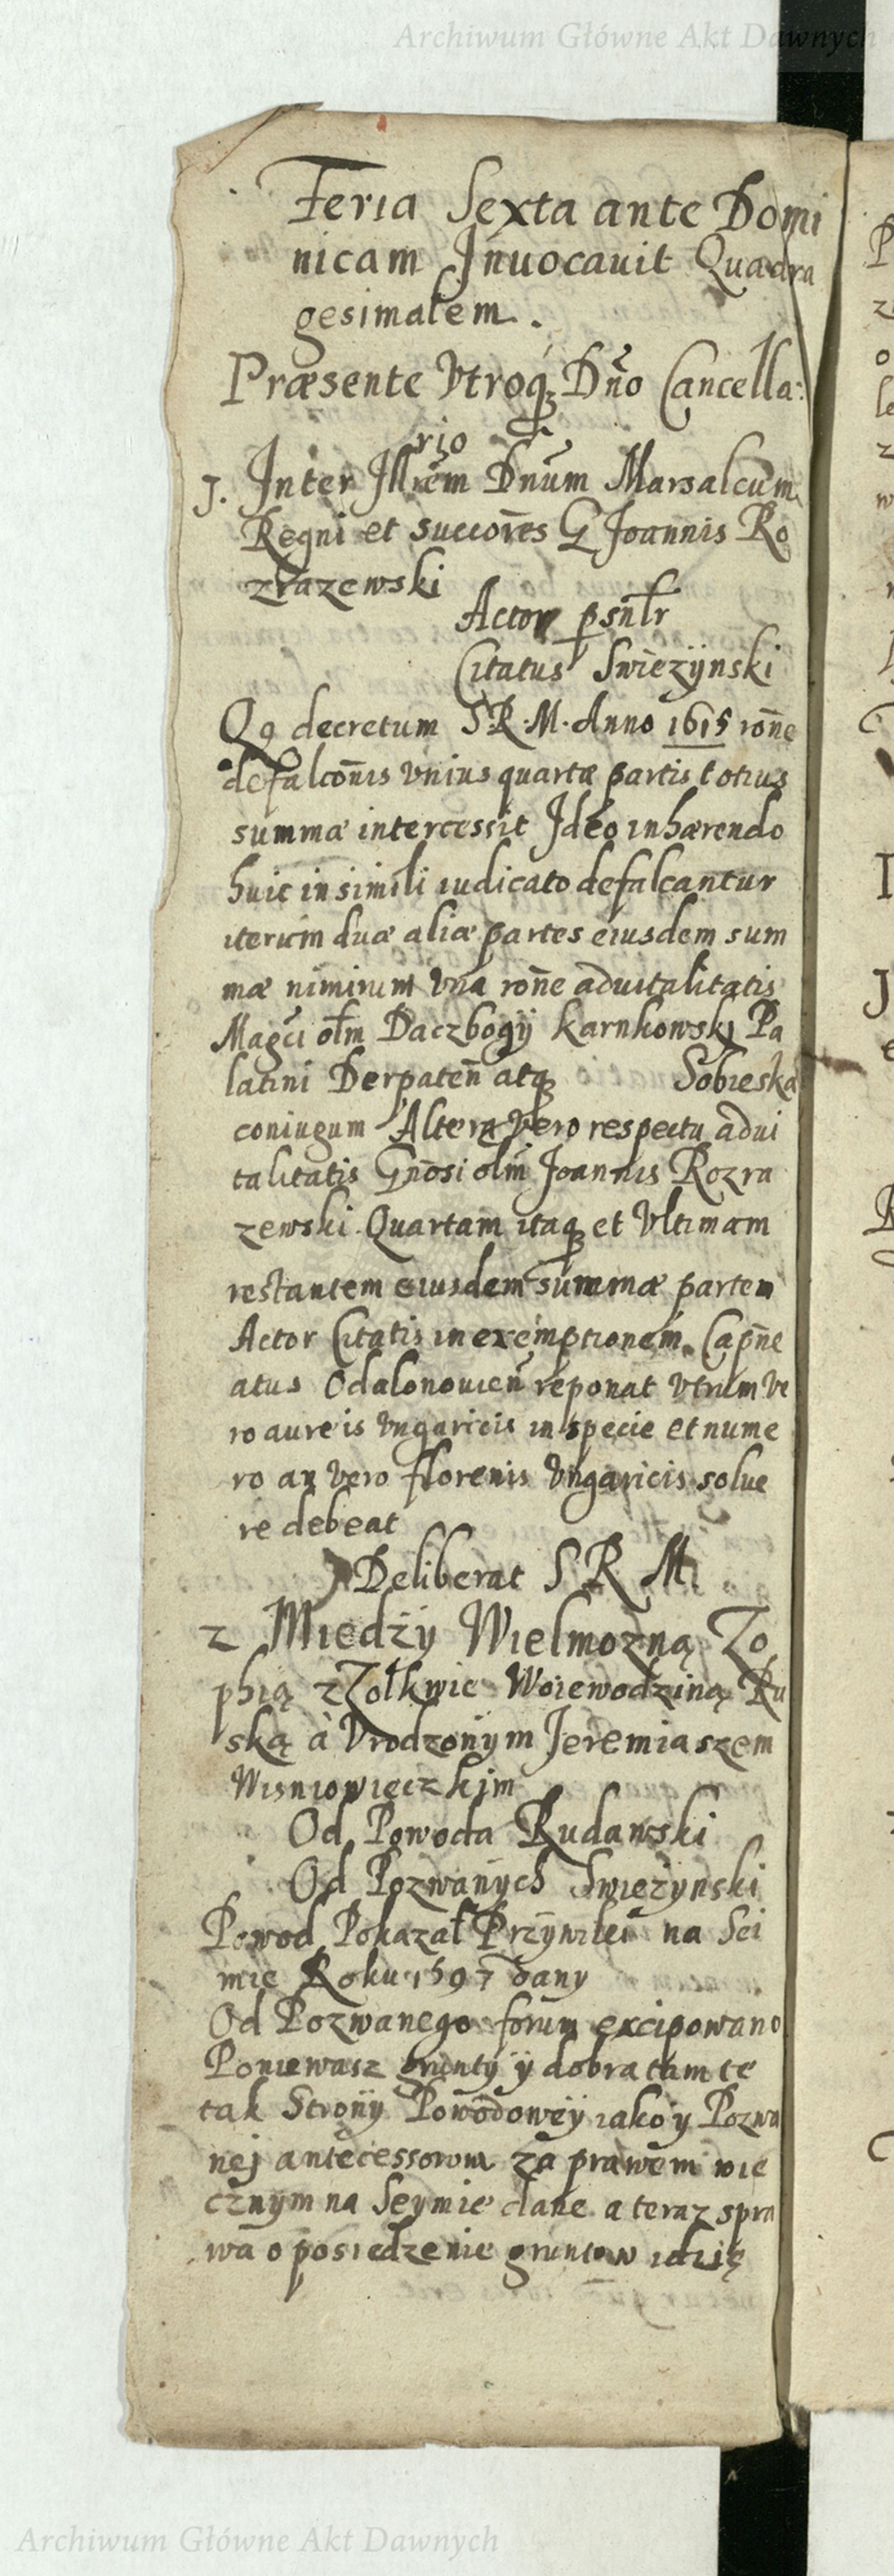 Archiwum Główne Akt Dawnych
Feria Sexta ante Domi
nicam Inuocauit Quadra
gesimalem.
Præsente Vtroqꝫ Dn̄o Cancella:
rio
1. Inter Illr̄em Dn̄um Marsalcum
Regni et succor̄es G Joannis Ro
zrazewski
Actor psn̄lr
Citatus Swiezÿnski
Qꝫ decretum S.R.M. Anno 1615 ron̄e
defalcon̄is vnius quartæ partis totius
summæ intercessit Ideo inhærendo
huic in simili iudicato defalcantur
iterum duæ aliæ partes eiusdem sum
mæ nimirum vna ron̄e aduitalitatis
Magc̄i olm̄ Daczbogÿ Karnkowski Pa
latini Derpaten̄ atqꝫ Sobieska
coniugum Altera vero respectu adui
talitatis Gn̄osi olm̄ Joannis Rozra
zewski. Quartam itaqꝫ et Vltimam
restantem eiusdem summæ partem
Actor Citatis in exemptionem Capn̄e
atus Odalonouien̄ reponat vtrum ve
ro aureis vngaricis in specie et nume
ro an vero florenis Vngaricis solue
re debeat
Deliberat S R M.
2 Miedzÿ Wielmozną Zo
phią z Zołkwie Woiewodziną Ru
ską à Vrodzonÿm Jeremiaszem
Wisniowieczkim
Od Powoda Rudawski
Od Pozwanÿch Swiezynski
Powod Pokazał Przÿwilei na Sei
mie Roku 1597 dany
Od Pozwanego forum excipowano
Poniewasz gruntÿ ÿ dobra tam te
tak Stronÿ Powodoweÿ iako y Pozwa
nej antecessorom za prawem wie
cznÿm na Seymie dane a teraz spra
wa o posiedzenie gruntow idzię
Archiwum Główne Akt Dawnych